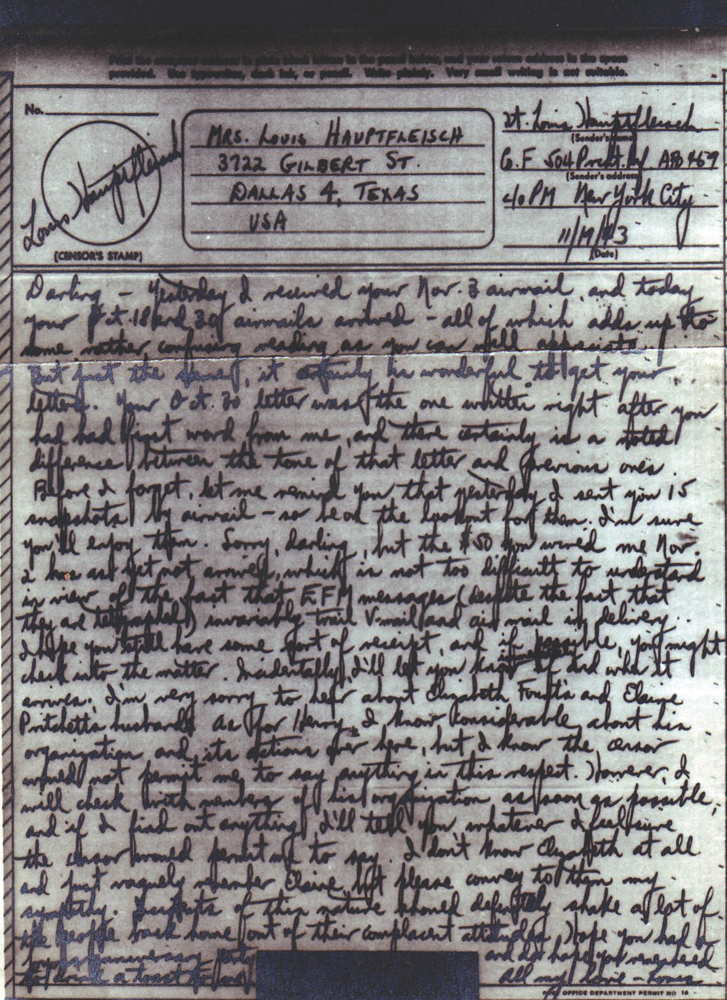 Print the complete address in plain block letters in the panel below, and your return address in the space
provided. Use typewriter, dark ink, or pencil. Write plainly. Very small writing is not suitable.
No.
MRS. LOUIS HAUPTFLEISCH
3722 GILBERT ST.
DALLAS 4, TEXAS
USA
Louis Hauptfleisch
(CENSOR'S STAMP)
Lt. Louis Hauptfleisch
(Sender's name)
504 APO 469
(Sender's address)
c/o PM New York City
11/19/43
(Date)
Darling – Yesterday I received your Nov. 3 airmail, and today
your Oct. 18 and 30 airmails arrived – all of which adds up to
some rather confusing reading as you can well appreciate.
But just the same, it certainly is wonderful to get your
letters. Your Oct. 30 letter was the one written right after you
had had first word from me, and there certainly is a noted
difference between the tone of that letter and previous ones
Before I forget, let me remind you that yesterday I sent you 15
snapshots by airmail – so be on the lookout for them. I'm sure
you'll enjoy them. Sorry, darling, but the $50 you wired me Nov.
2 has as yet not arrived, which is not too difficult to understand
in view of the fact that EFM messages (despite the fact that
they are telegraphed) invariably trail V-mail and air mail in delivery.
I hope you still have some sort of receipt, and if possible, you might
check into the matter. Incidentally, I'll let you know if and when it
arrives. I'm very sorry to hear about Elizabeth and Elaine
Pritchett's husbands. As for Henry, I know considerable about his
organization and its actions over here, but I know the censor
would not permit me to say anything in this respect. However, I
will check with members of his organization as soon as possible,
and if I find out anything I'll tell you whatever I feel sure
the censor would permit me to say. I don't know Elizabeth at all
and just vaguely remember Elaine, but please convey to them my
sympathy. of this nature should definitely shake a lot of
the people back home out of their complacent attitude. Hope you had a
anniversary party and do hope you remembered
to drink a toast for me. All my love – Louis
POST OFFICE DEPARTMENT PERMIT NO. 18